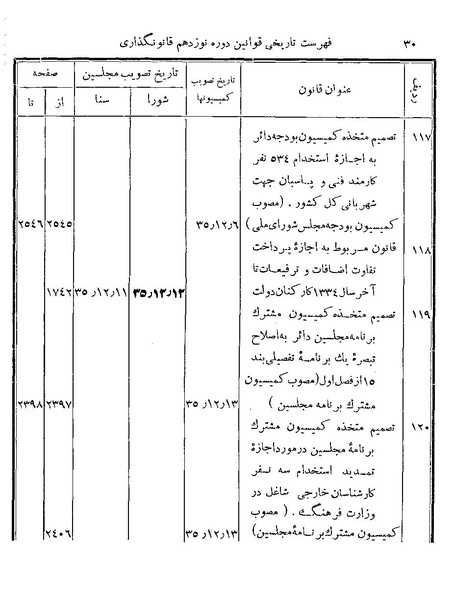 ۳۰ فهرست تاریخی قوانین دوره نوزدهم قانونگذاری
ردیف عنوان قانون تاریخ تصویب کمیسیونها تاریخ تصویب مجلسین شورا سنا صفحه از تا
۱۱۷ تصمیم متخذه کمیسیون بودجه دائر
به اجازهٔ استخدام ۵۳۴ نفر
کارمند فنی و پاسبان جهت
شهربانی کل کشور . (مصوب
کمیسیون بودجه مجلس شورای ملی) ۳۵٫۱۲٫۶ ۲۵۴۵ ۲۵۴۶
۱۱۸ قانون مربوط به اجازهٔ پرداخت
تفاوت اضافات و ترفیعات تا
آخر سال ۱۳۳۴ کارکنان دولت ۳۵٫۱۲٫۱۲ ۳۵٫۱۲٫۱۱ ۱۷۴۲
۱۱۹ تصمیم متخذه کمیسیون مشترك
برنامه مجلسین دائر به اصلاح
تبصرهٔ یك برنامهٔ تفصیلی بند
۱۵ از فصل اول (مصوب کمیسیون
مشترك برنامه مجلسین ) ۳۵٫۱۲٫۱۳ ۲۳۹۷ ۲۳۹۸
۱۲۰ تصمیم متخذه کمیسیون مشترك
برنامهٔ مجلسین در مورد اجازهٔ
تمدید استخدام سه نفر
کارشناسان خارجی شاغل در
وزارت فرهنگ . ( مصوب
کمیسیون مشترك برنامهٔ مجلسین) ۳۵٫۱۲٫۱۳ ۲۴۰۶